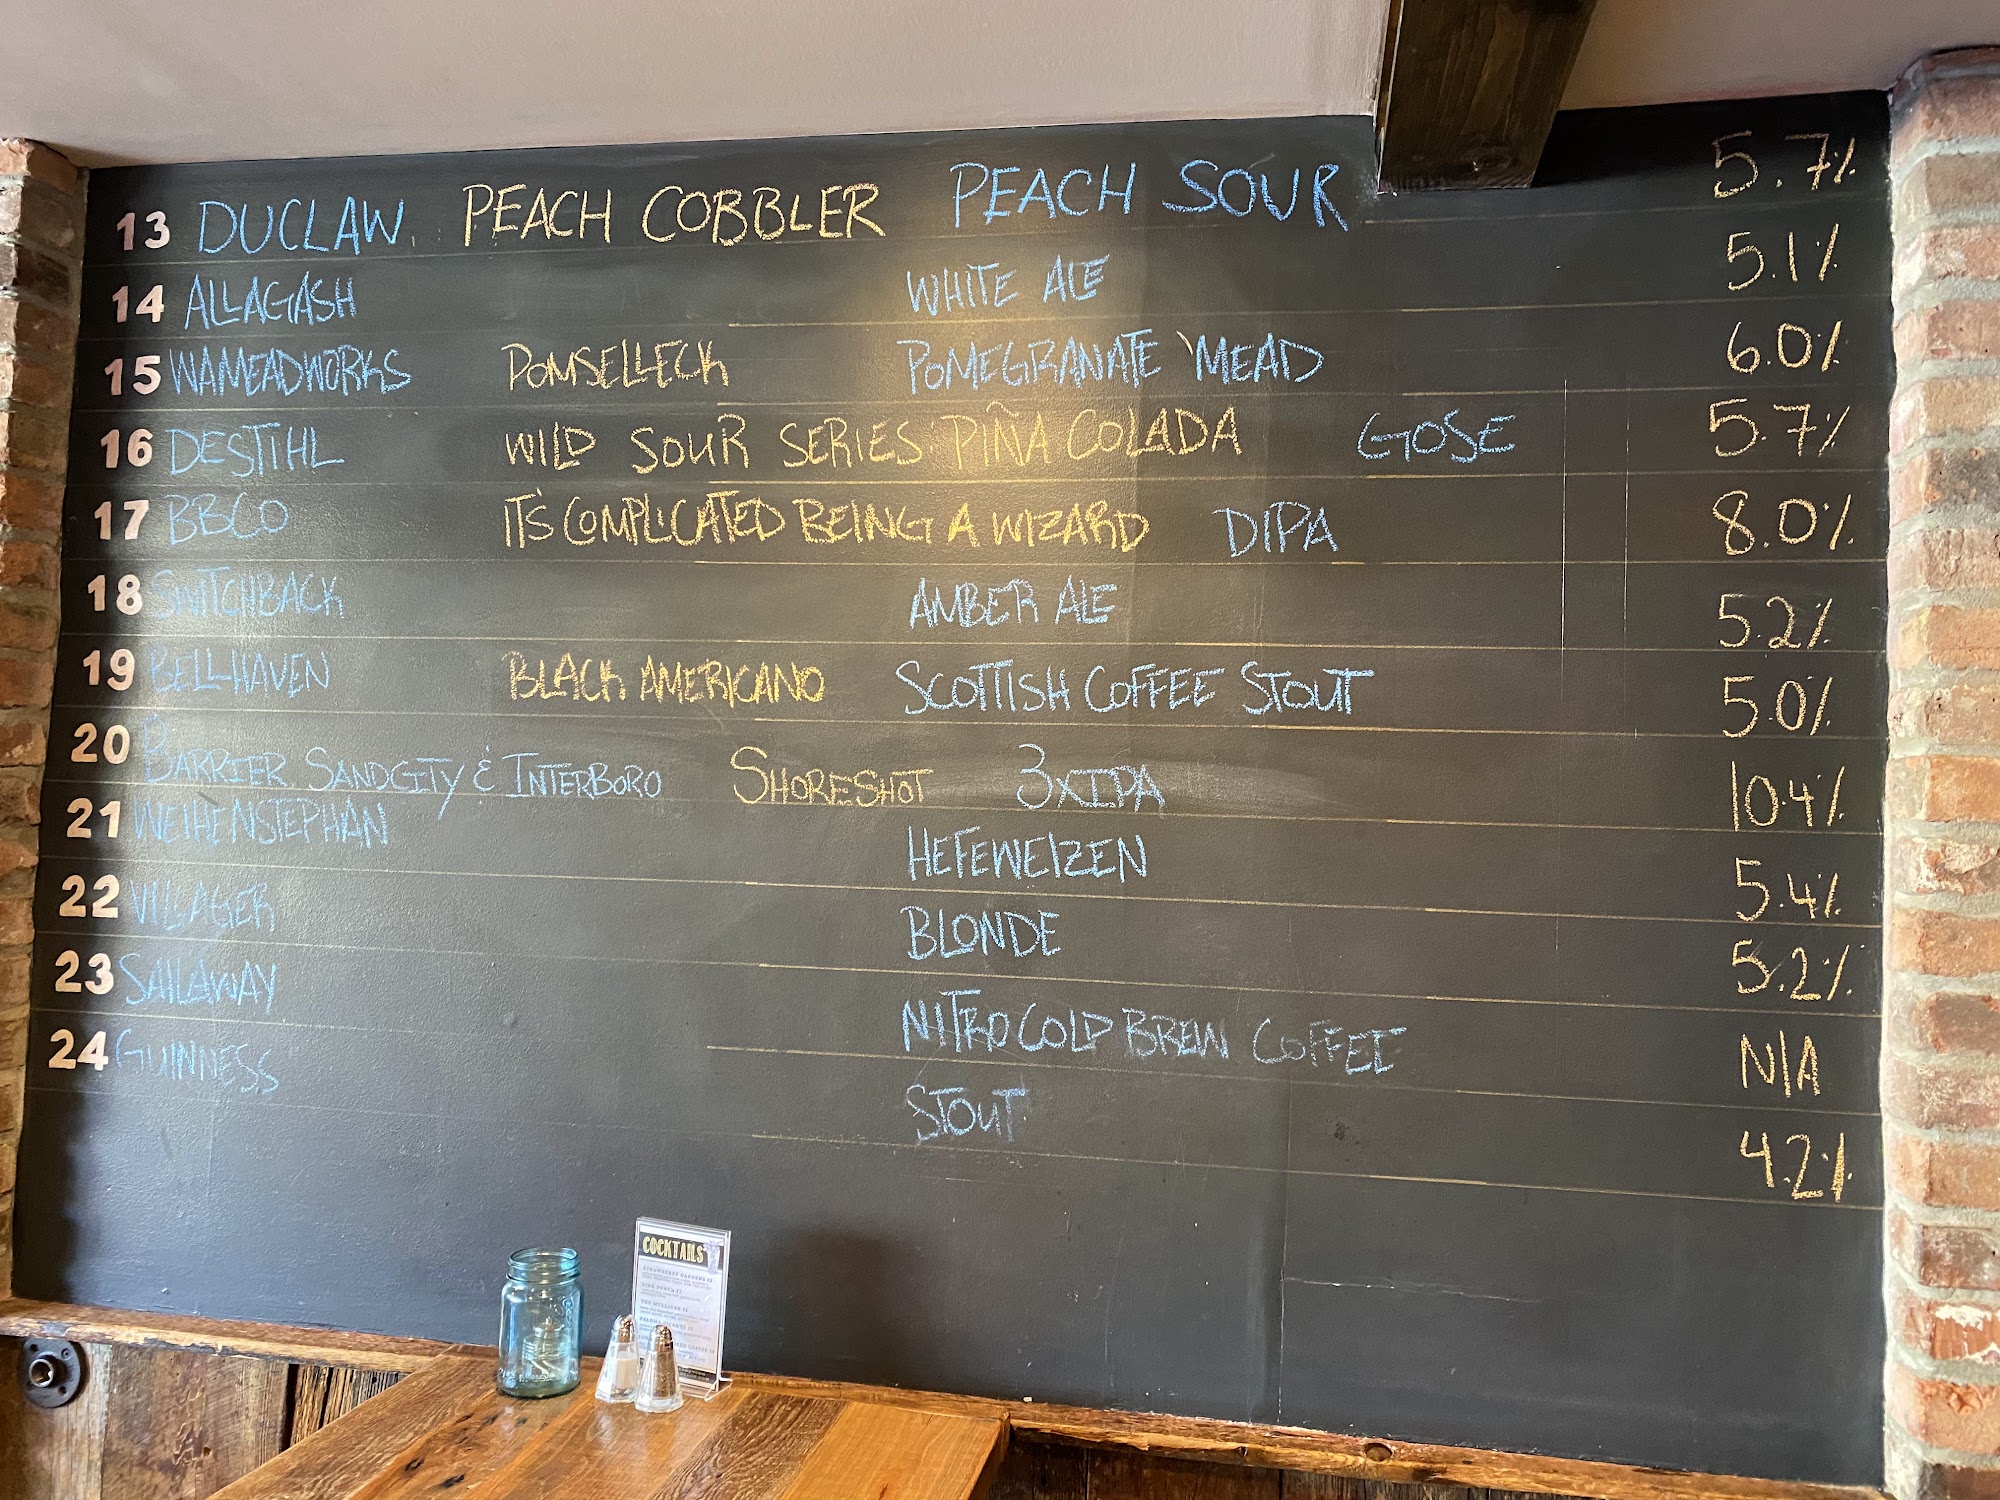 13 DUCLAW PEACH COBBLER PEACH SOUR 5.7%
14 ALLAGASH WHITE ALE 5.1%
15 WAMEADWORKS POMSELLECK POMEGRANATE MEAD 6.0%
16 DESTIHL WILD SOUR SERIES PIÑA COLADA GOSE 5.7%
17 BBCO IT'S COMPLICATED BEING A WIZARD DIPA 8.0%
18 SWITCHBACK AMBER ALE 5.2%
19 BELLHAVEN BLACK AMERICANO SCOTTISH COFFEE STOUT 5.0%
20 BARRIER SANDCITY & INTERBORO SHORESHOT 3XIPA 10.4%
21 WEIHENSTEPHAN HEFEWEIZEN 5.4%
22 VILLAGER BLONDE 5.2%
23 SAILAWAY NITRO COLD BREW COFFEE N/A
24 GUINNESS STOUT 4.2%
COCKTAILS